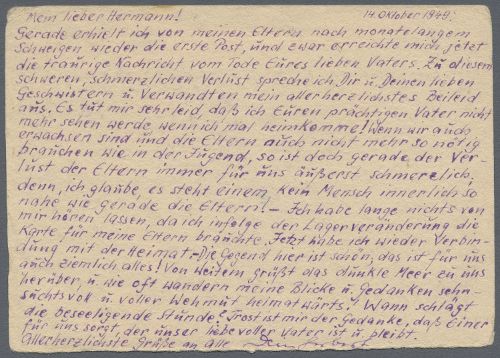 Mein lieber Hermann! 14. Oktober 1948.
Gerade erhielt ich von meinen Eltern nach monatelangem
Schweigen wieder die erste Post, und zwar erreichte mich jetzt
die traurige Nachricht vom Tode Eures lieben Vaters. Zu diesem
schweren, schmerzlichen Verlust spreche ich Dir u. Deinen lieben
Geschwistern u. Verwandten mein allerherzlichstes Beileid
aus. Es tut mir sehr leid, daß ich Euren prächtigen Vater nicht
mehr sehen werde, wenn ich mal heimkomme! Wenn wir auch
erwachsen sind und die Eltern auch nicht mehr so nötig
brauchen wie in der Jugend, so ist doch gerade der Ver-
lust der Eltern immer für uns äußerst schmerzlich,
denn, ich glaube es steht einem kein Mensch innerlich so
nahe wie gerade die Eltern! – Ich habe lange nichts von
mir hören lassen, da ich infolge der Lagerveränderung die
Karte für meine Eltern brauchte. Jetzt habe ich wieder Verbin-
dung mit der Heimat. – Die Gegend hier ist schön, das ist für uns
auch ziemlich alles! Von weitem grüßt das dunkle Meer zu uns
herüber, u. wie oft wandern meine Blicke u. Gedanken sehn-
suchtsvoll u. voller Wehmut heimatwärts! Wann schlägt
die beseeligende Stunde? Trost ist mir der Gedanke, daß Einer
für uns sorgt, der unser liebevoller Vater ist u. bleibt.
Allerherzlichste Grüße an alle Dein